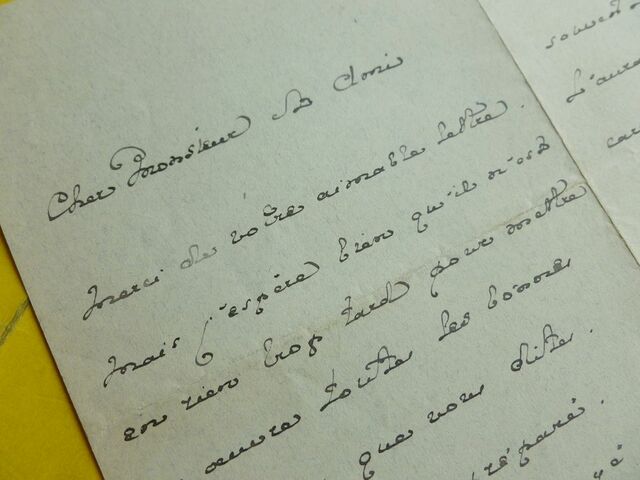 Cher Monsieur et Ami
Merci de votre aimable lettre.
Mais j'espère bien qu'il n'est
en rien trop tard pour mettre
œuvre toutes les bonnes
que vous dites.
réparé.
souvent
L'aura
car